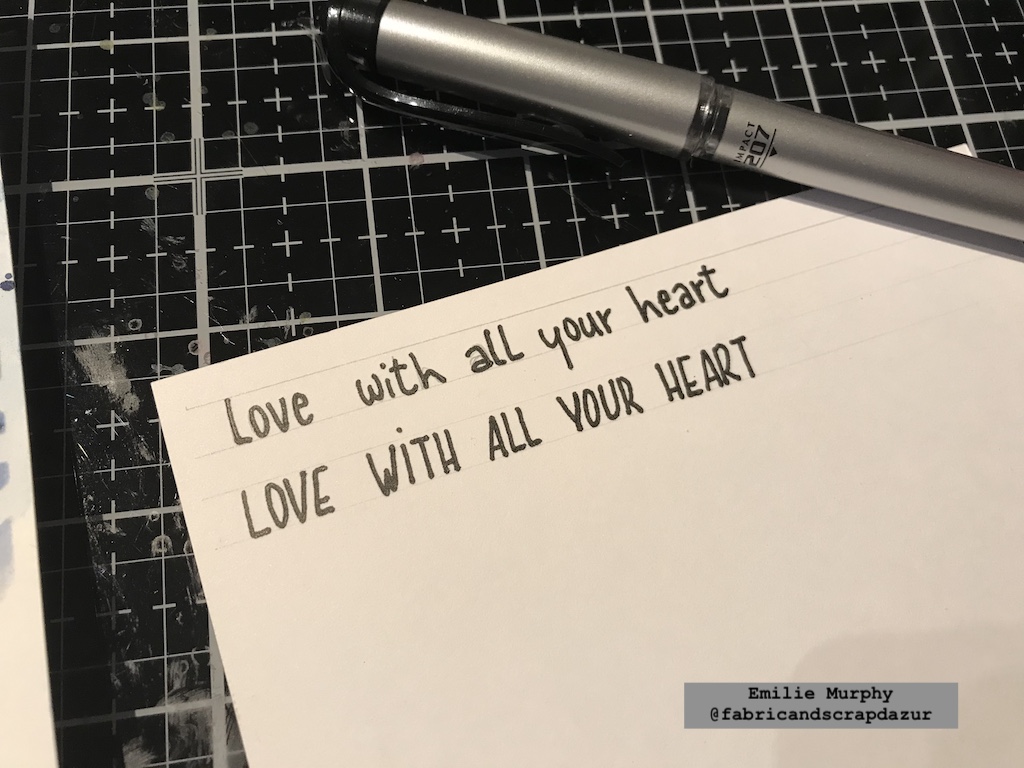 IMPACT
207
Love with all your heart
LOVE WiTH ALL YOUR HEART
Emilie Murphy
@fabricandscrapdazur